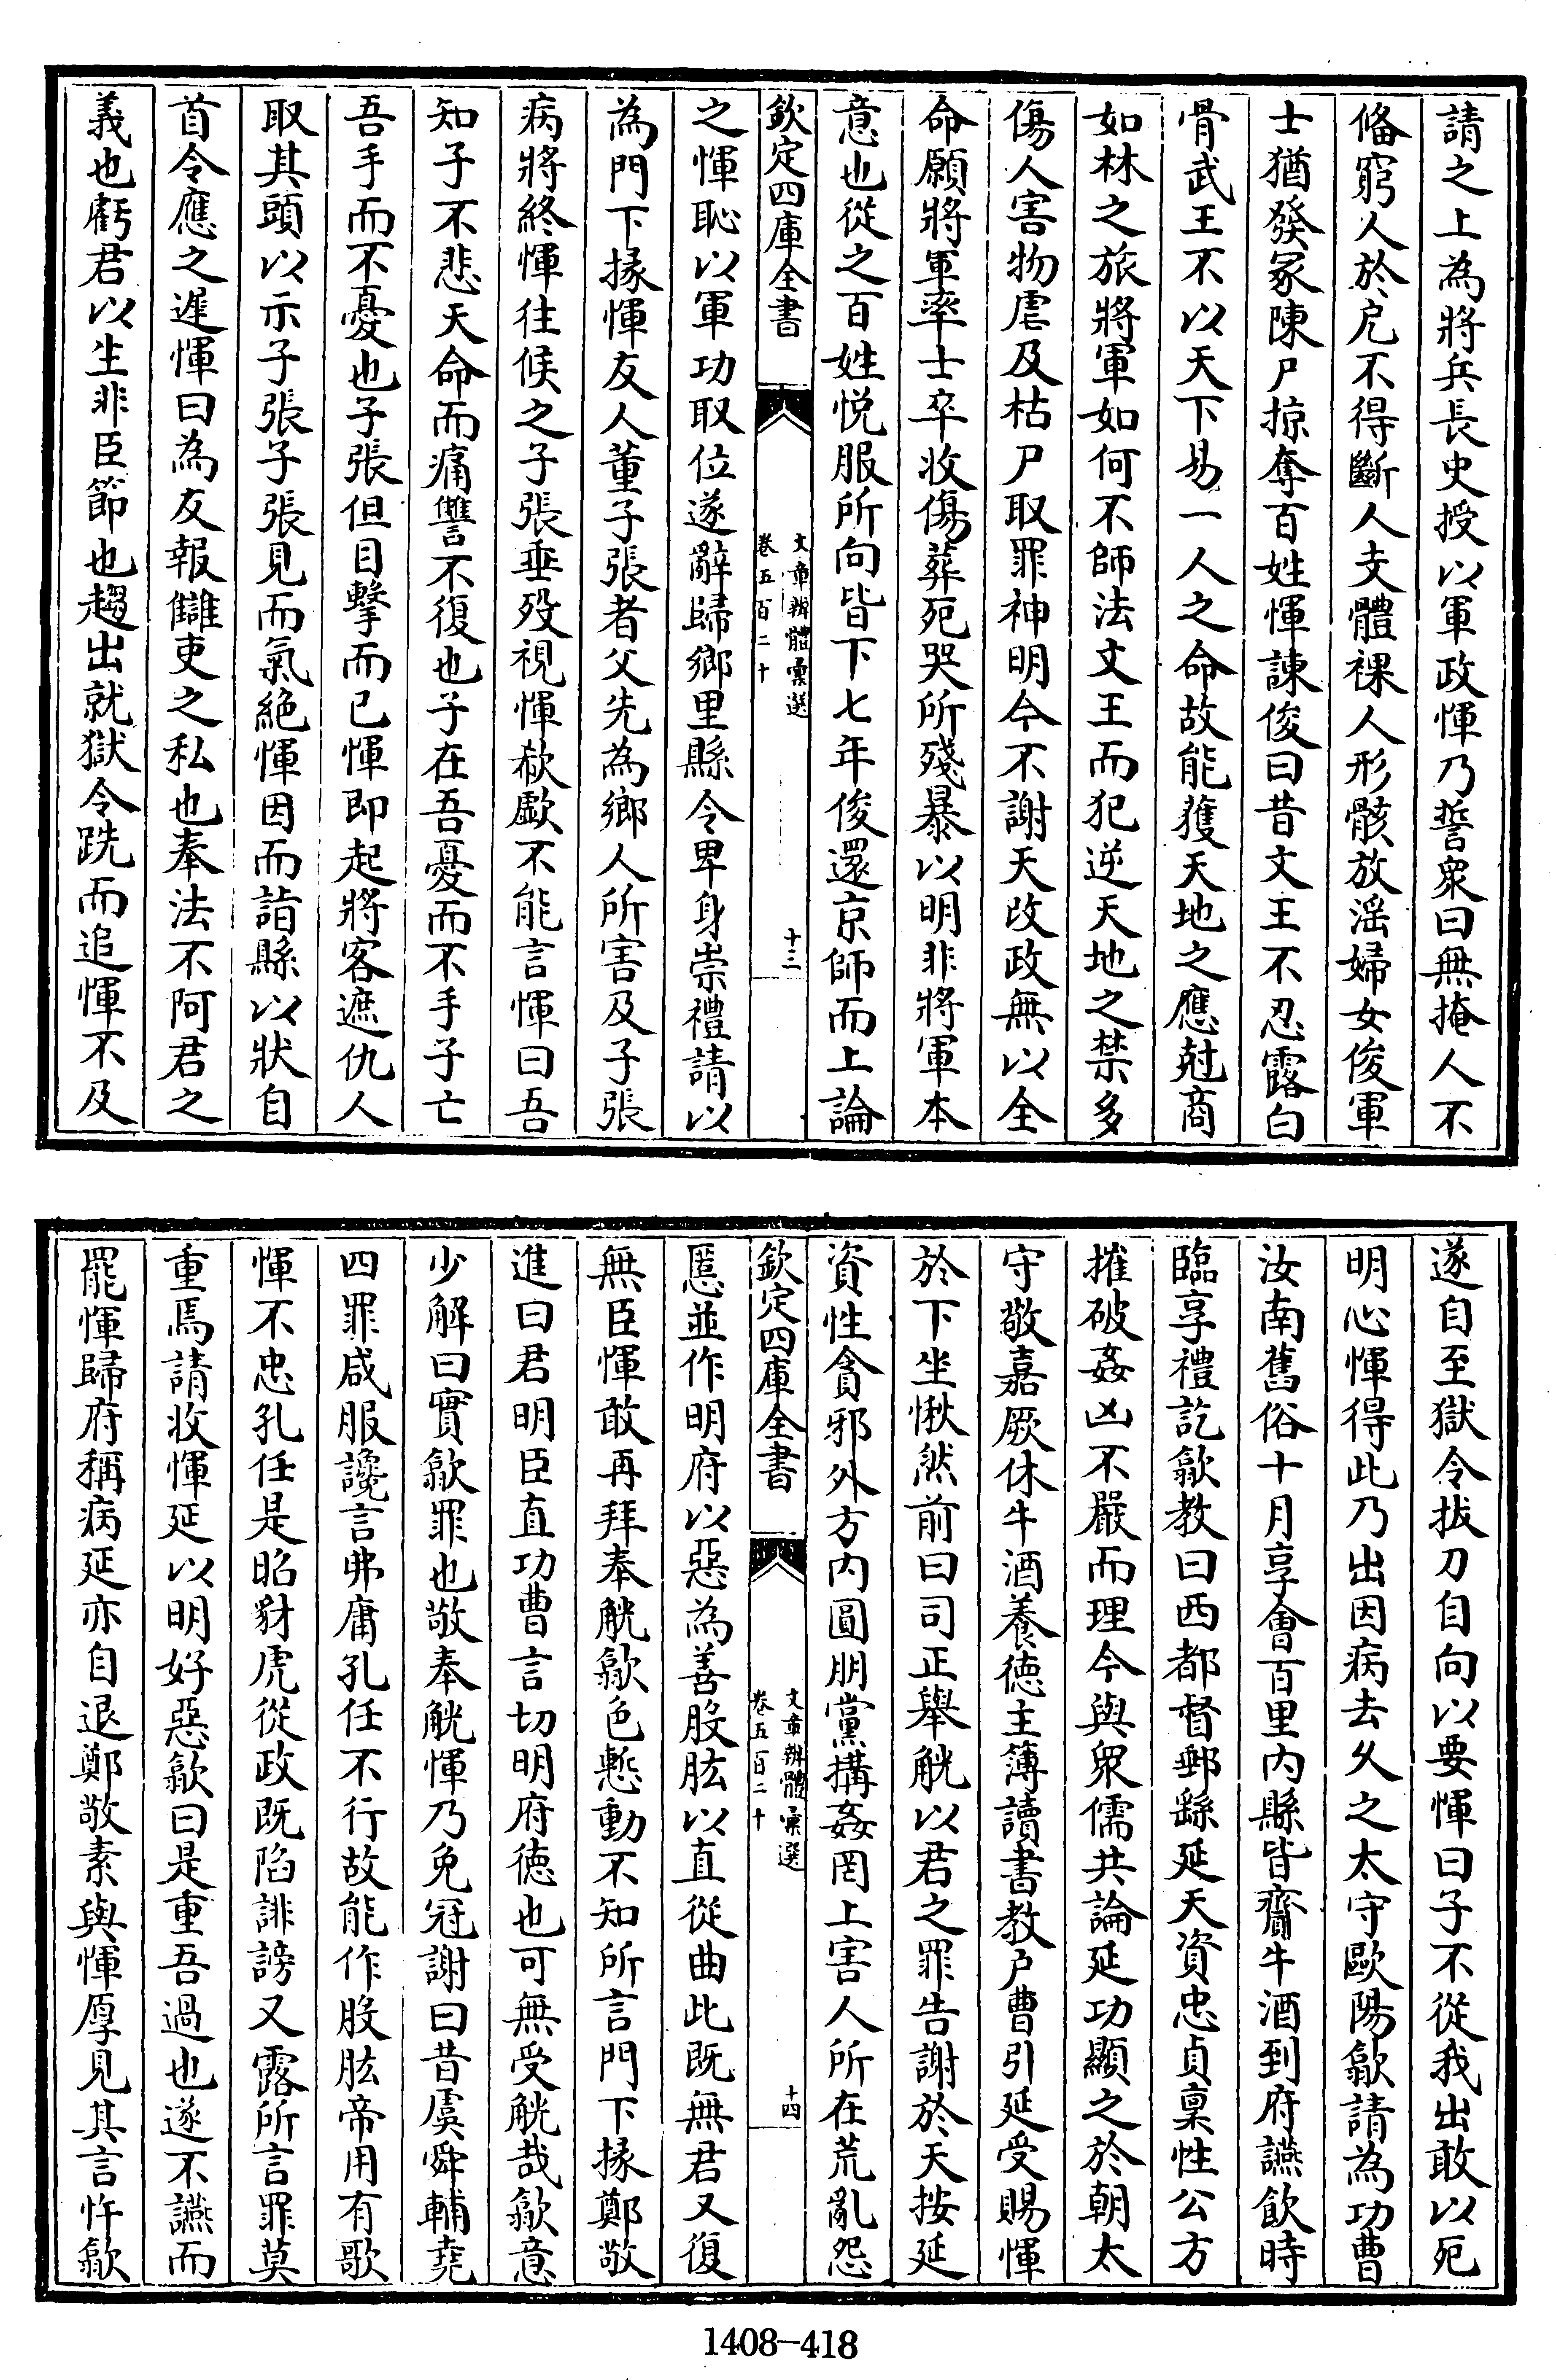 請之上為將兵長史授以軍政惲乃誓衆曰無掩人不
偹窮人於厄不得斷人支體裸人形骸放滛婦女俊軍
士猶發冢陳尸掠奪百姓惲諫俊曰昔文王不忍露白
骨武王不以天下易一人之命故能獲天地之應尅商
如林之旅將軍如何不師法文王而犯逆天地之禁多
傷人害物虐及枯尸取罪神明今不謝天改政無以全
命願將軍率士卒收傷葬死哭所殘暴以明非將軍本
意也從之百姓悦服所向皆下七年俊還京師而上論
欽定四庫全書
文章辨體彙選
卷五百二十
十三
之惲恥以軍功取位遂辭歸鄉里縣令卑身崇禮請以
為門下掾惲友人董子張者父先為鄉人所害及子張
病將終惲往候之子張垂殁視惲欷歔不能言惲曰吾
知子不悲天命而痛讐不復也子在吾憂而不手子亡
吾手而不憂也子張但目擊而已惲即起將客遮仇人
取其頭以示子張子張見而氣絶惲因而詣縣以狀自
首令應之遲惲曰為友報讎吏之私也奉法不阿君之
義也虧君以生非臣節也趨出就獄令跣而追惲不及
遂自至獄令拔刀自向以要惲曰子不從我出敢以死
明心惲得此乃出因病去久之太守歐陽歙請為功曹
汝南舊俗十月享會百里内縣皆齎牛酒到府讌飲時
臨享禮訖歙教曰西都督郵繇延天資忠貞稟性公方
摧破姦凶不嚴而理今與衆儒共論延功顯之於朝太
守敬嘉厥休牛酒養徳主簿讀書教户曹引延受賜惲
於下坐愀然前曰司正舉觥以君之罪告謝於天按延
資性貪邪外方内圓朋黨搆姦罔上害人所在荒亂怨
欽定四庫全書
文章辨體彙選
卷五百二十
十四
慝並作明府以惡為善股肱以直從曲此既無君又復
無臣惲敢再拜奉觥歙色慙動不知所言門下掾鄭敬
進曰君明臣直功曹言切明府徳也可無受觥哉歙意
少解曰實歙罪也敬奉觥惲乃免冠謝曰昔虞舜輔堯
四罪咸服讒言弗庸孔任不行故能作股肱帝用有歌
惲不忠孔任是昭豺虎從政既陷誹謗又露所言罪莫
重焉請收惲延以明好惡歙曰是重吾過也遂不讌而
罷惲歸府稱病延亦自退鄭敬素與惲厚見其言忤歙
1408-418